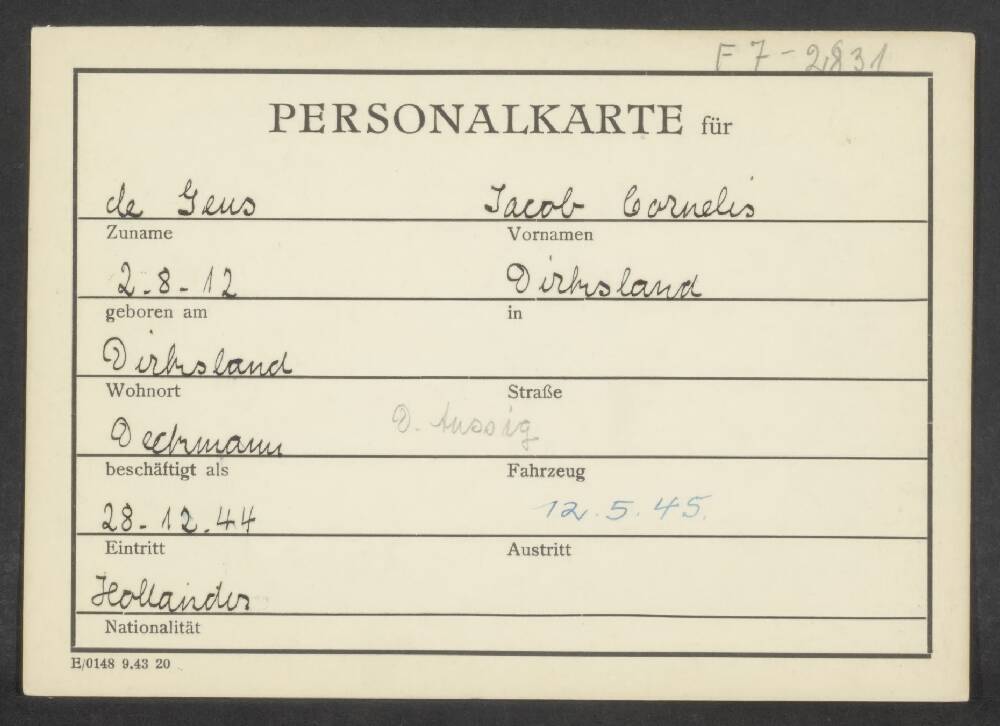 F 7 - 2831
PERSONALKARTE für
de Geus Jacob Cornelis
Zuname Vornamen
2-8-12 Dirksland
geboren am in
Dirksland
Wohnort Straße
Deckmann D. Aussig
beschäftigt als Fahrzeug
28-12.44 12.5.45.
Eintritt Austritt
Hollander
Nationalität
E/0148 9.43 20